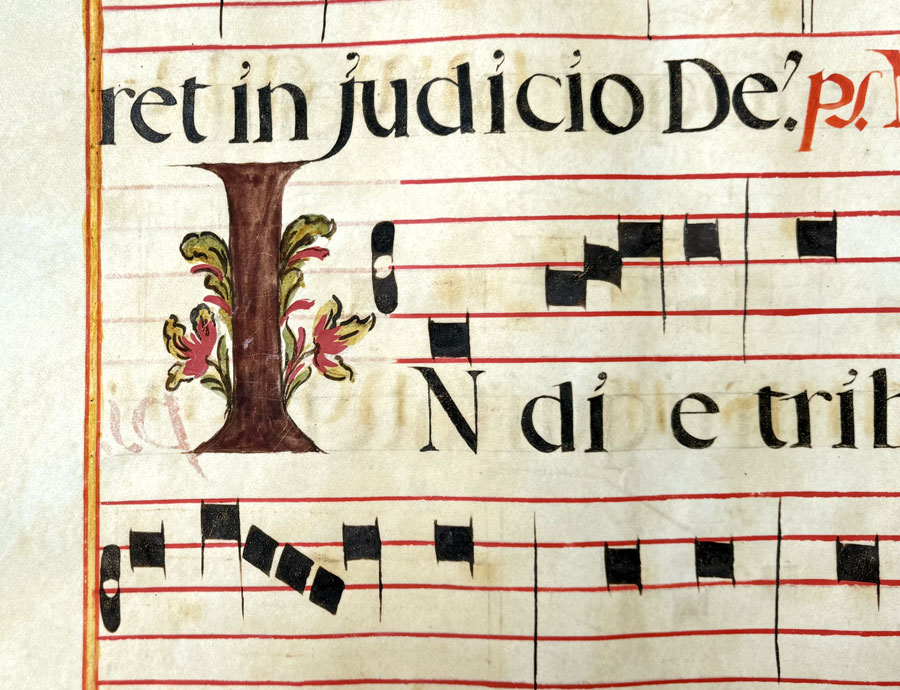 ret in judicio De'. ps.
IN di e trib